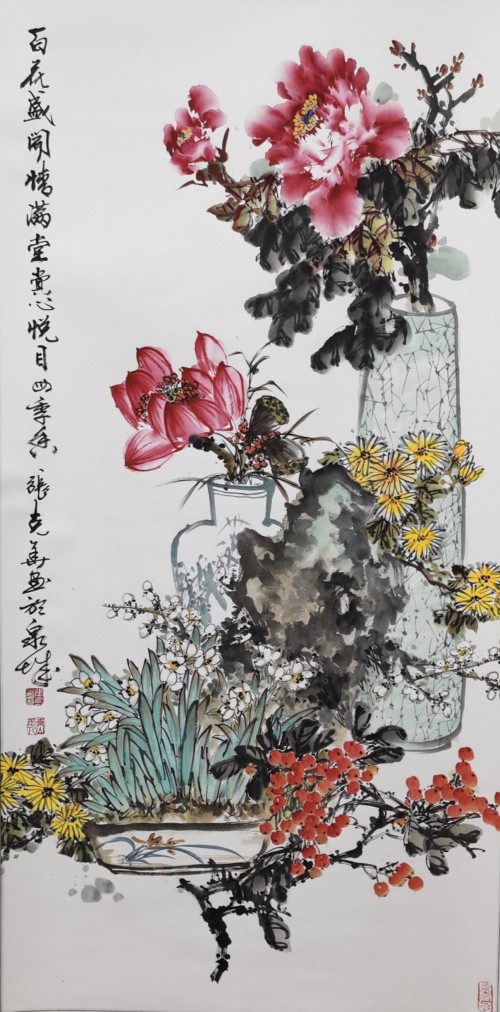 百花盛開情滿堂賞心悦目四季香張克華畫於泉城